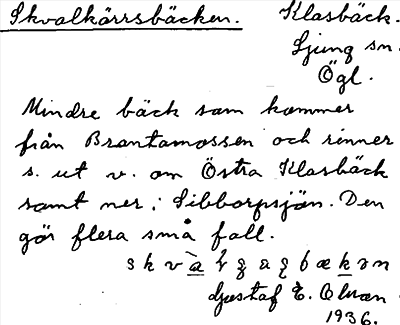 Skvalkärrsbäcken. Klasbäck.
Ljung sn.
Ögl.
Mindre bäck som kommer
från Brantamossen och rinner
s. ut v. om Östra Klasbäck
samt ner i Sibborpsjön. Den
gör flera små fall.
Gustaf E. Olman
1936.